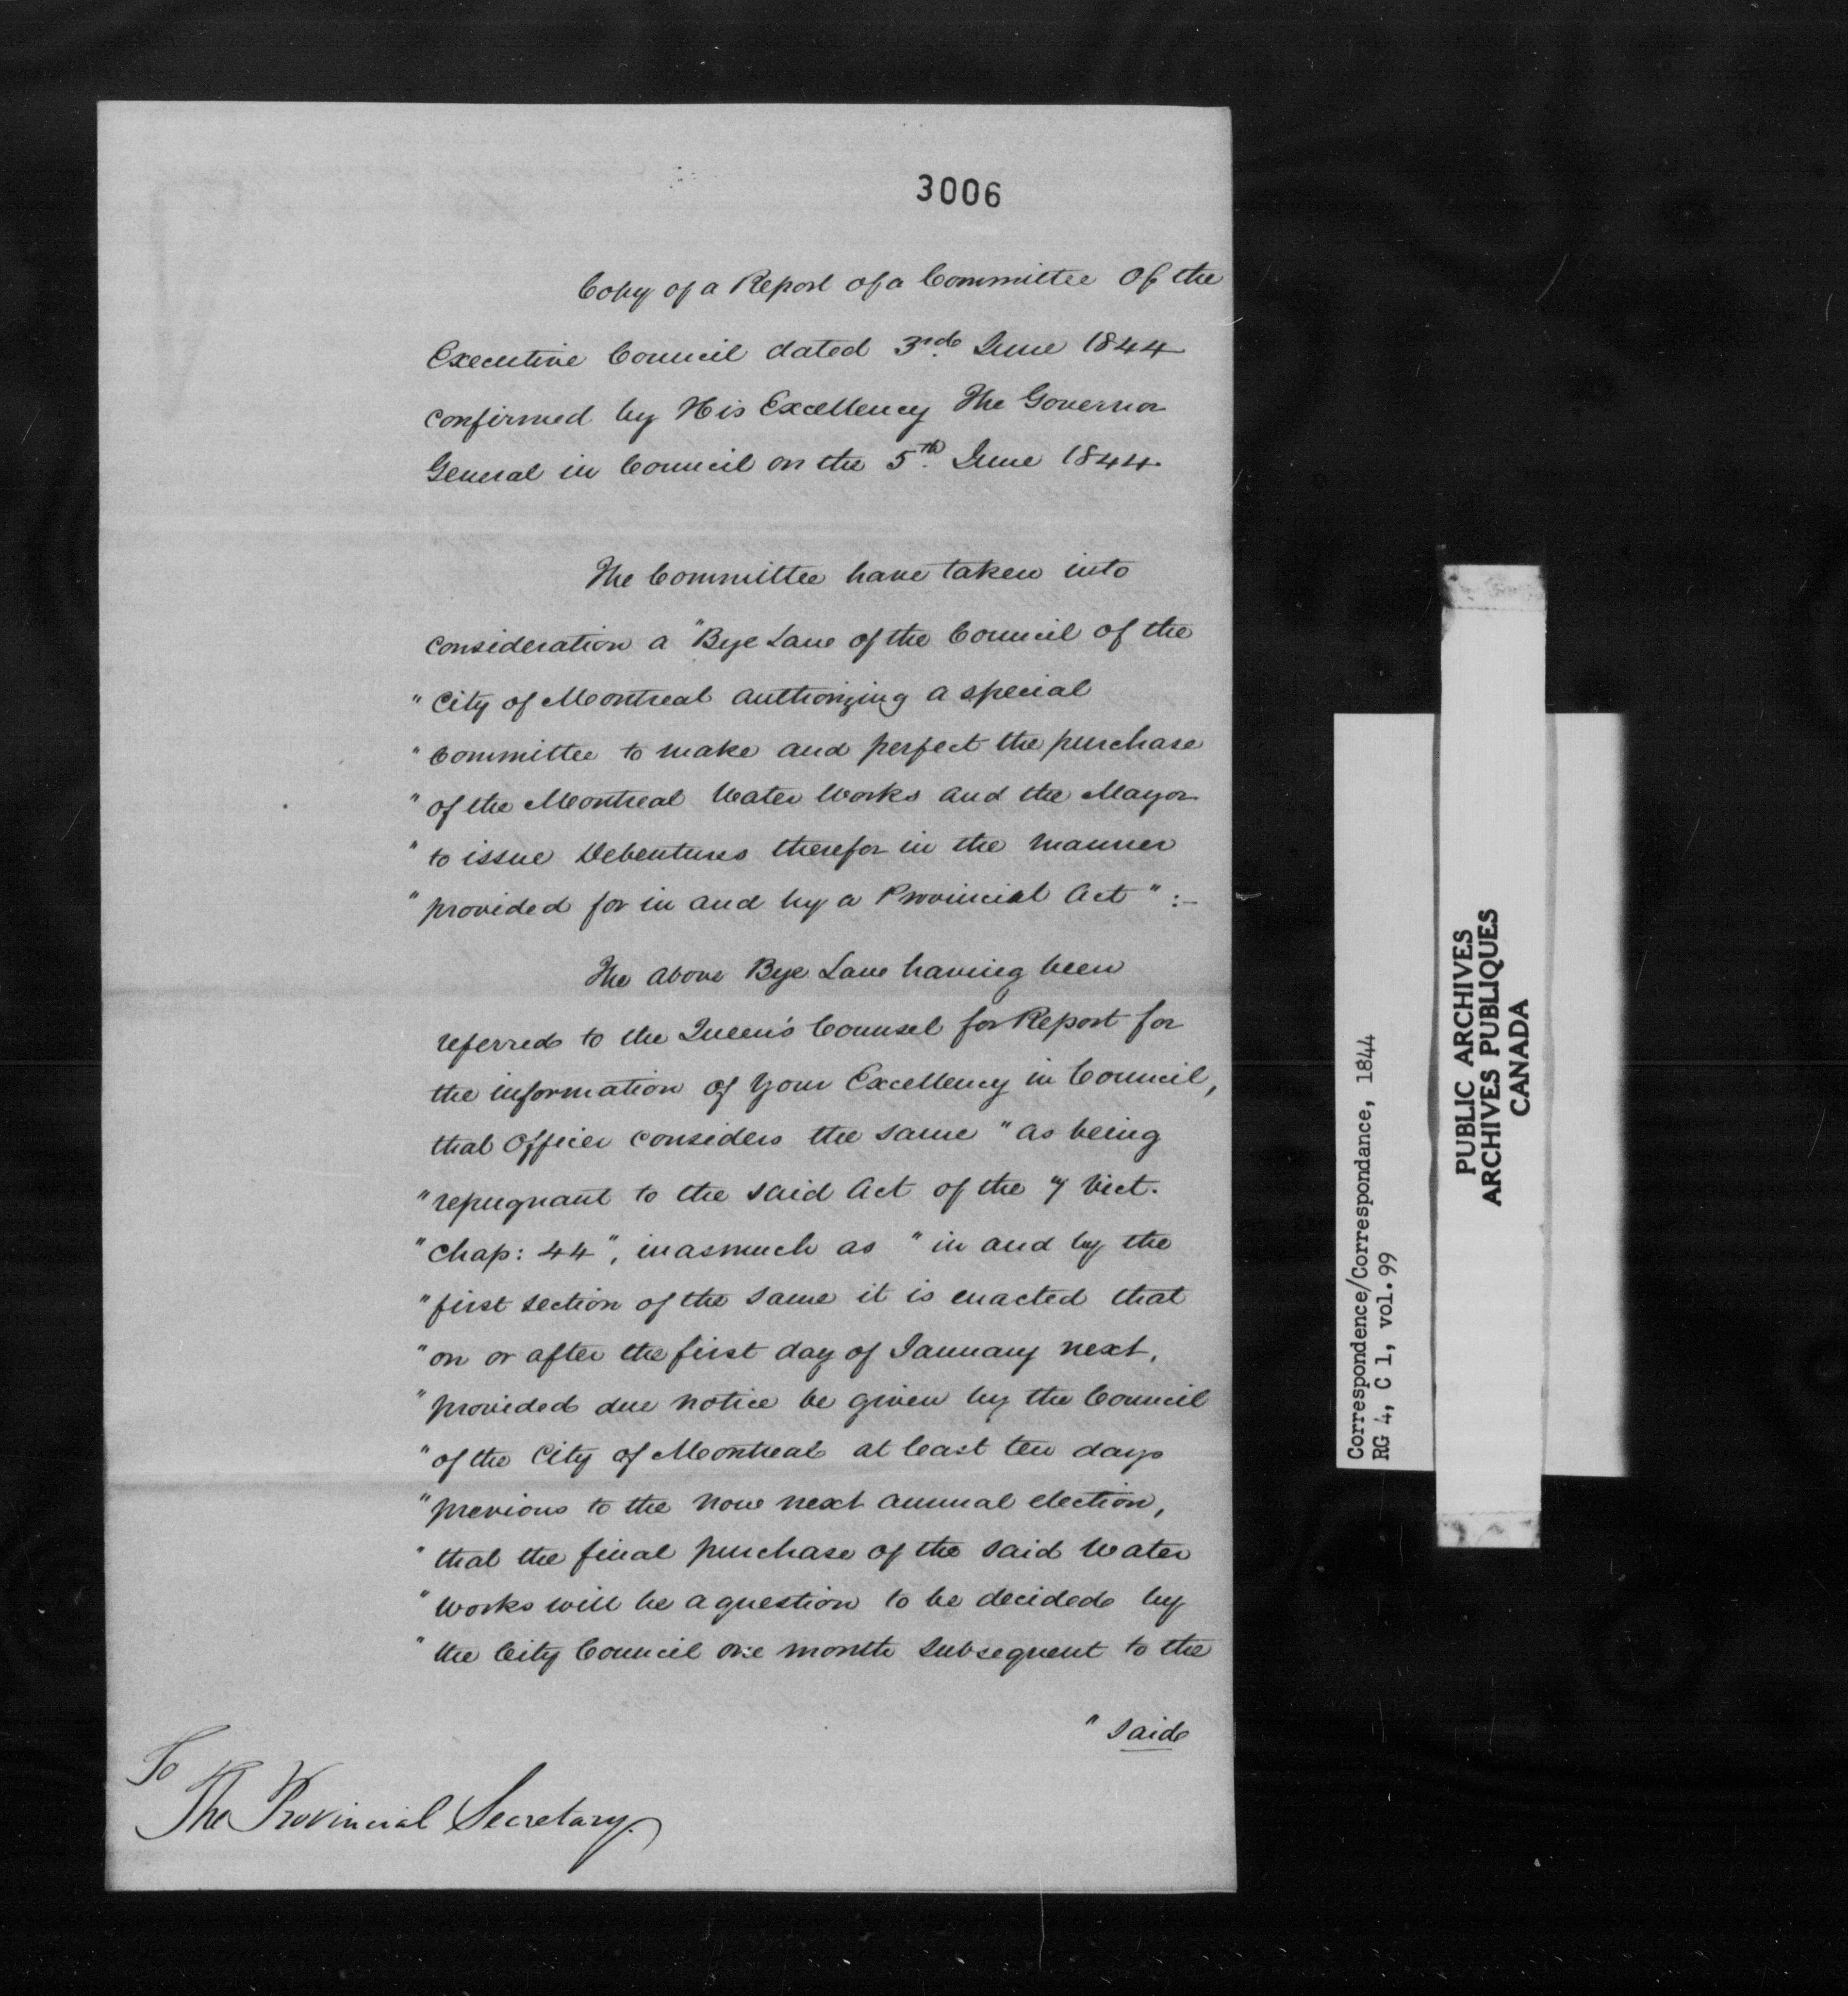 3006
Copy of a Report of a Committee Of the
Executive Council dated 3rd June 1844
confirmed by His Excellency The Governor
General in Council on the 5th June 1844.
The Committee have taken into
consideration a "Bye Law of the Council of the
" City of Montreal authorizing a special
" Committee to make and perfect the purchase
" of the Montreal Water Works and the Mayor
" to issue Debentures therefor in the manner
" provided for in and by a Provincial Act " :-
The above Bye Law having been
referred to the Queen's Counsel for Report for
the information of Your Excellency in Council,
that Officer considers the same " as being
" repugnant to the said Act of the 7 Vict.
" Chap: 44 ", inasmuch as " in and by the
" first section of the same it is enacted that
" on or after the first day of January next,
" provided due notice be given by the Council
" of the City of Montreal at least ten days
" previous to the now next annual election,
" that the final purchase of the said Water
" Works will be a question to be decided by
" the City Council one month subsequent to the
" said
To
The Provincial Secretary.
Correspondence/Correspondance, 1844
RG 4, C 1, vol.99
PUBLIC ARCHIVES
ARCHIVES PUBLIQUES
CANADA